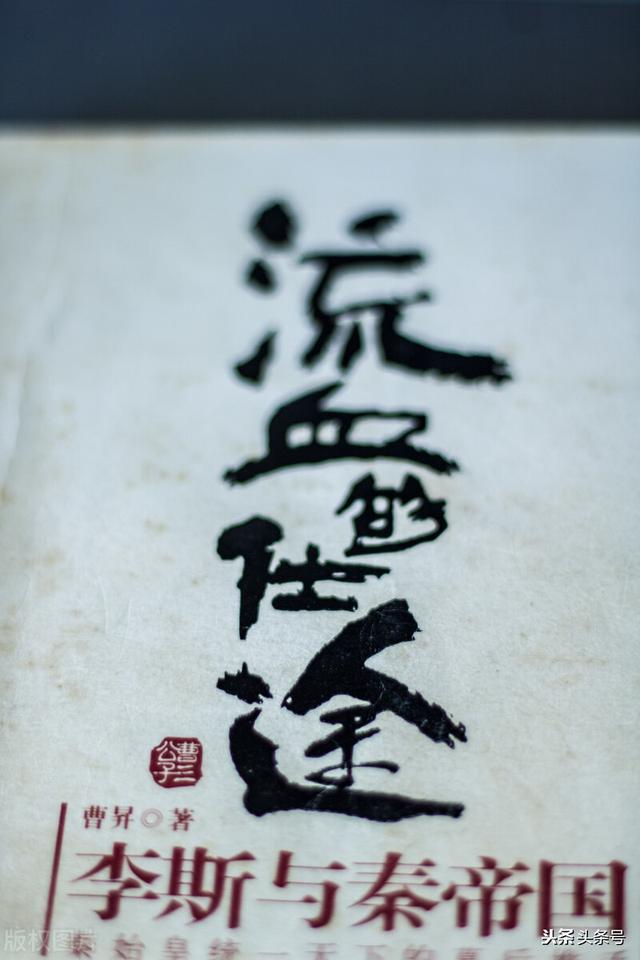 流血的仕途
曹三公子
曹昇◎著
李斯与秦帝国
秦始皇统一天下的幕后推手
版权图片
头条 头条号